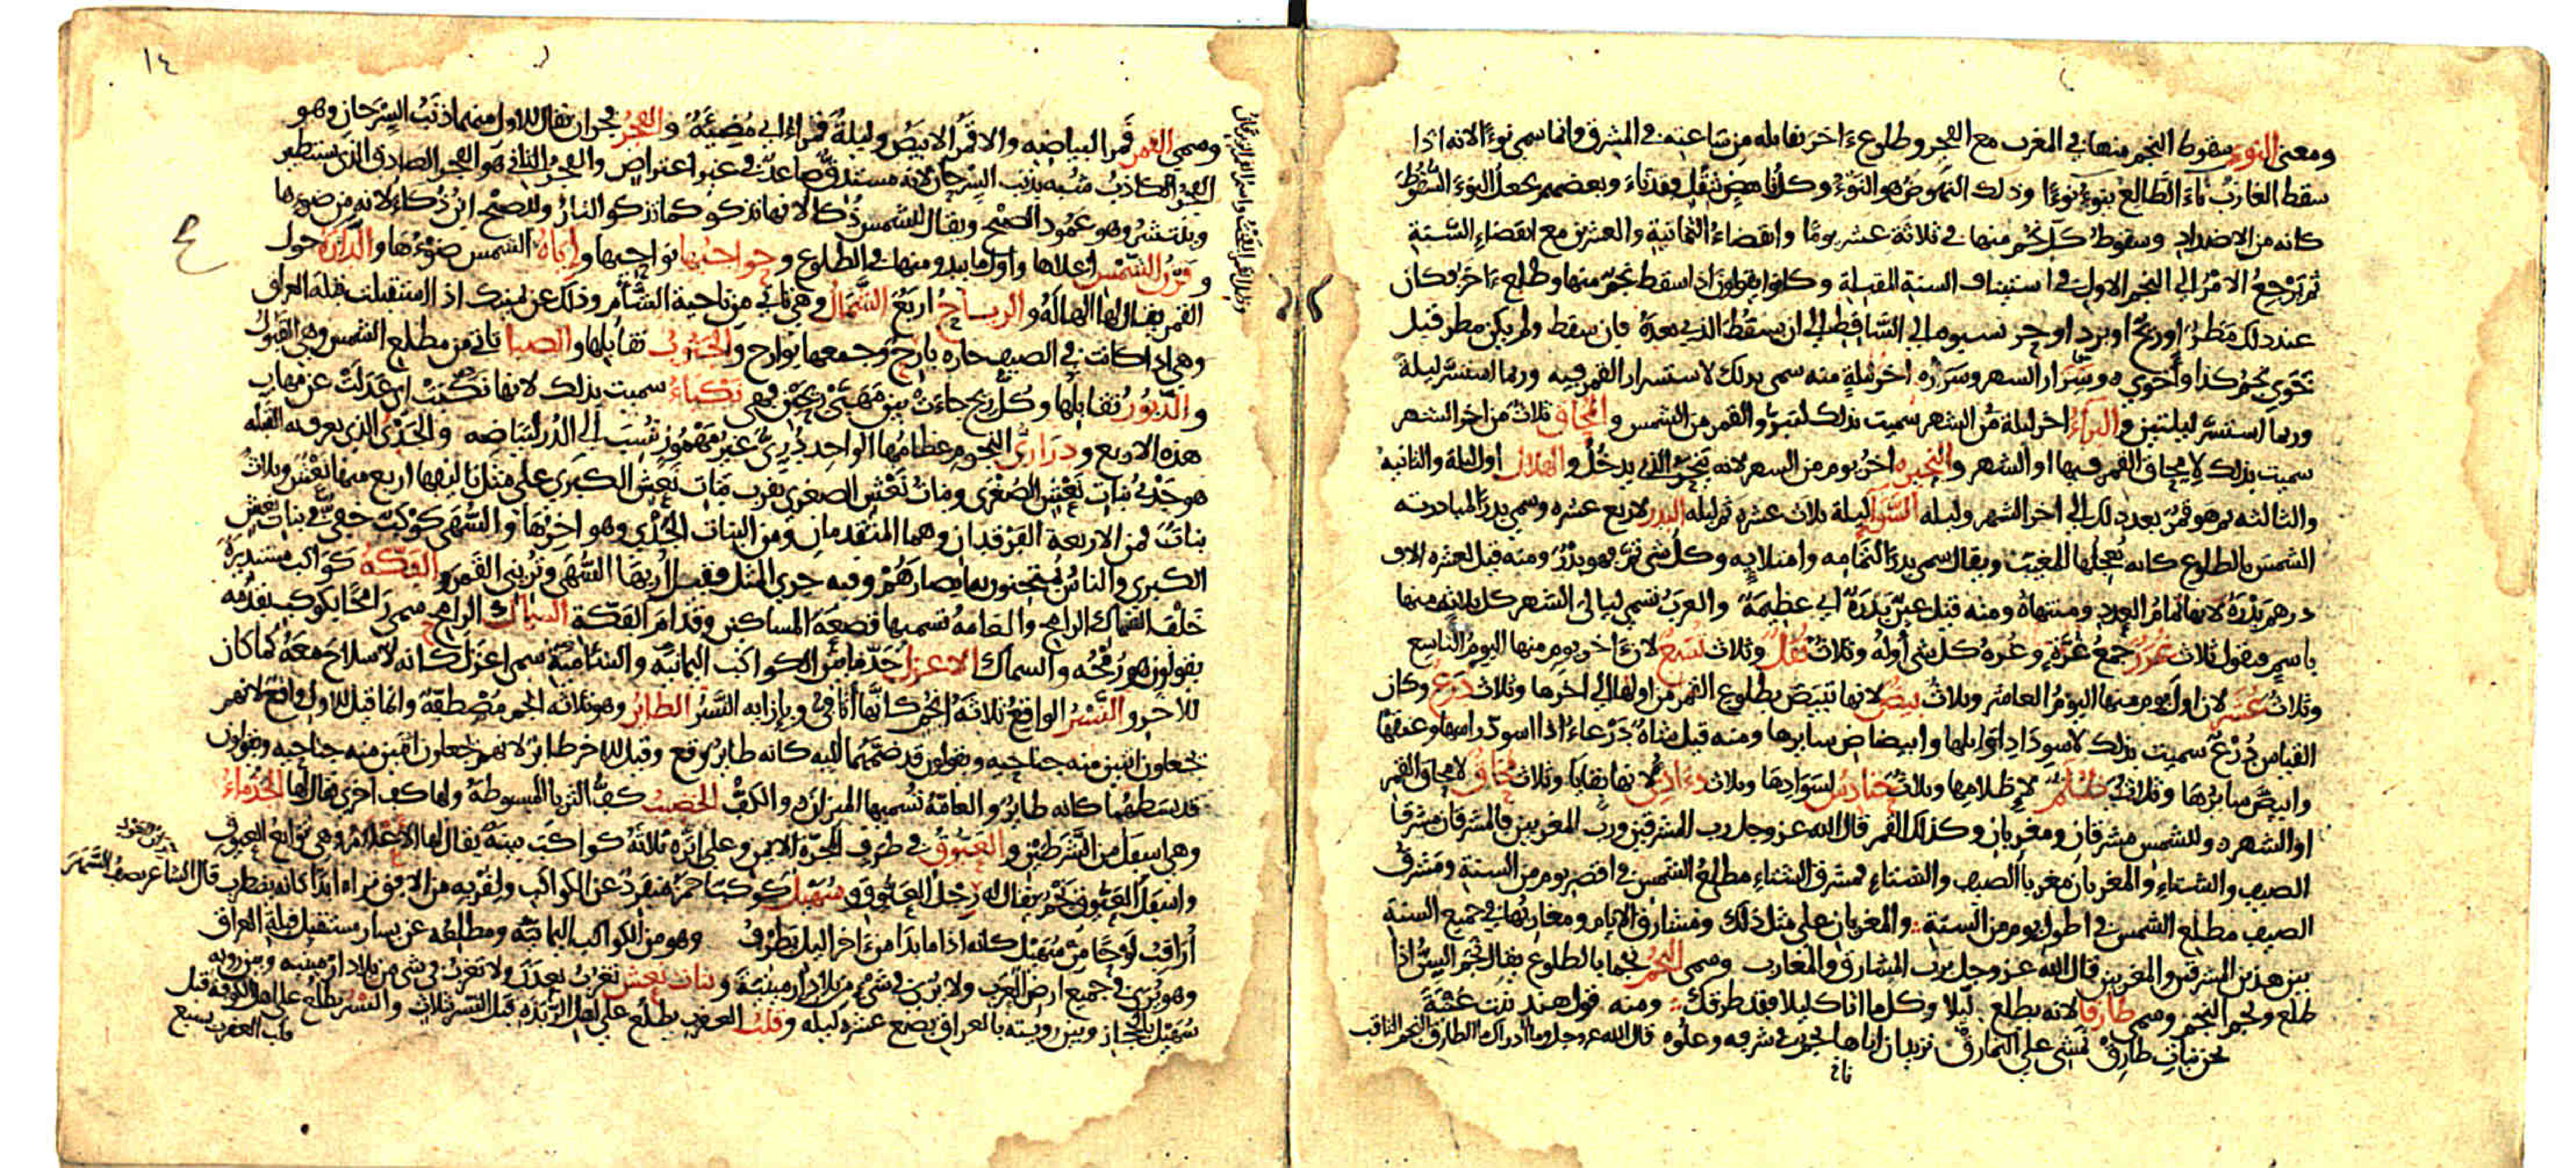 ومعنى النوء سقوط النجم منها في المغرب مع الفجر وطلوع ءاخر يقابله من ساعته في المشرق وانما سمي نوءا لانه اذا
سقط الغارب ناء الطالع ينوء نوءا وذلك النهوض هو النوء وكل ناهض بثقل فقد ناء وبعضهم يجعل النوء السقوط
كانه من الاضداد وسقوط كل نجم منها في ثلاثة عشر يوما وانقضاء الثمانية والعشرين مع انقضاء السنة
ثم يرجع الامر الى النجم الاول في استيناف السنة المقبلة وكانوا يقولون اذا سقط نجم منها وطلع ءاخر فكان
عند ذلك مطر او ريح او برد او حر نسبوه الى الساقط الى ان يسقط الذي بعده فان سقط ولم يكن مطر قيل
خوى نجم كذا واخوى وسرار الشهر وسرره اخر ليلة منه سمي بذلك لاستسرار القمر فيه وربما استسر ليلة
وربما استسر ليلتين والبراء اخر ليلة من الشهر سميت بذلك لتبرؤ القمر من الشمس والمحاق ثلاث من اخر الشهر
سميت بذلك لامحاق القمر فيها او الشهر والنحيره اخر يوم من الشهر لانه ينحر الذي يدخل والهلال اول ليلة والثانيه
والثالثه ثم هو قمر بعد ذلك الى اخر الشهر وليله السواء ليلة ثلاث عشرة ثم ليله البدر لاربع عشره وسمي بدرا لمبادرته
الشمس بالطلوع كانه يعجلها المغيب ويقال سمي بدرا لتمامه وامتلايه وكل شي تم فهو بدر ومنه قيل لعشره الاف
درهم بدرة لانها تمام العدد ومنتهاه ومنه قيل عين بدرة اي عظيمة والعرب تسمي ليالي الشهر كل ثلاثه منها
باسم فتقول ثلاث غرر جمع غرة وغرة كل شي اوله وثلاث نفل وثلاث تسع لان ءاخر يوم منها اليوم التاسع
وثلاث عشر لان اول يوم منها اليوم العاشر وثلاث بيض لانها تبيض بطلوع القمر من اولها الى اخرها وثلاث درع وكان
القياس درع سميت بذلك لاسوداد اوايلها وابيضاض سايرها ومنه قيل شاة درعاء اذا اسود راسها وعنقها
وابيض سايرها وثلاث ظلم لاظلامها وثلاث حنادس لسوادها وثلاث دءادي لانها بقايا وثلاث محاق لامحاق القمر
او الشهر وللشمس مشرقان ومغربان وكذلك القمر قال الله عز وجل رب المشرقين ورب المغربين فالمشرقان مشرقا
الصيف والشتاء والمغربان مغربا الصيف والشتاء فمشرق الشتاء مطلع الشمس في اقصر يوم من السنة ومشرق
الصيف مطلع الشمس في اطول يوم من السنة والمغربان على مثل ذلك ومشارق الايام ومغاربها في جميع السنة
بين هذين المشرقين والمغربين قال الله عز وجل برب المشارق والمغارب وسمي النجم نجما بالطلوع يقال نجم السن اذا
طلع ونجم النجم وسمي طارقا لانه يطلع ليلا وكل ما اتاك ليلا فقد طرقك ومنه قول هند بنت عتبة
نحن بنات طارق نمشي على النمارق تريد ان اباها نجم في شرفه وعلوه قال الله عز وجل وما ادراك ما الطارق النجم الثاقب
١٤
وسمي القمر قمرا لبياضه والاقمر الابيض وليلة قمراء اي مضيئة والفجر فجران يقال للاول منهما ذنب السرحان وهو
الفجر الكاذب شبه بذنب السرحان لانه مستدق صاعد في غير اعتراض والفجر الثاني هو الفجر الصادق الذي يستطير
وينتشر وهو عمود الصبح ويقال للشمس ذكاء لانها تذكو كما تذكو النار وللصبح ابن ذكاء لانه من ضوءها
وقرن الشمس اعلاها واول ما يبدو منها في الطلوع وحواجبها نواحيها واياة الشمس ضوءها والدارة حول
القمر يقال لها الهالة والرياح اربع الشمال وهي تاتي من ناحية الشام وذلك عن يمينك اذا استقبلت قبلة العراق
وهي اذا كانت في الصيف حاره بارح وجمعها بوارح والجنوب تقابلها والصبا تاتي من مطلع الشمس وهي القبول
والدبور تقابلها وكل ريح جاءت بين مهبي ريحين فهي نكباء سميت بذلك لانها نكبت اي عدلت عن مهاب
هذه الاربع ودراري النجوم عظامها الواحد دري غير مهموز نسب الى الدر لبياضه والجدي الذي يعرف به القبله
هو جدي بنات نعش الصغرى وبنات نعش الصغرى بقرب بنات نعش الكبرى على مثل تاليفها اربع منها نعش وثلاث
بنات فمن الاربعة الفرقدان وهما المتقدمان ومن البنات الجدي وهو اخرها والسهى كوكب خفي في بنات نعش
الكبرى والناس يمتحنون بها ابصارهم وفيه جرى المثل فقيل اريها السهى وتريني القمر والفكة كواكب مستديرة
خلف السماك الرامح والعامة تسميها قصعة المساكين وقدام الفكة السماك الرامح سمي رامحا بكوكب يقدمه
يقولون هو رمحه والسماك الاعزل حد ما بين الكواكب اليمانية والشامية سمي اعزل كانه لا سلاح معه كما كان
للاخر والنسر الواقع ثلاثة انجم كانها اثافي وبازايه النسر الطاير وهو ثلاثة انجم مصطفة وانما قيل للاول واقع لانهم
يجعلون اثنين منه جناحيه ويقولون قد ضمهما اليه كانه طاير وقع وقيل للاخر طاير لانهم يجعلون اثنين منه جناحيه ويقولون
قد بسطهما كانه طاير والعامة تسميها الميزان والكف الخضيب كف الثريا المبسوطة ولها كف اخرى يقال لها الجذماء
وهي اسفل من الشرطين والعيوق في طرف المجرة الايمن وعلى اثره ثلاثة كواكب بينة يقال لها الاعلام وهي توابع العيوق
واسفل العيوق نجم يقال له رجل العيوق وسهيل كوكب احمر منفرد عن الكواكب ولقربه من الافق تراه ابدا كانه يضطرب قال الشاعر يصف السهر
اراقب لوحا من سهيل كانه اذا ما بدا من ءاخر اليل يطرف وهو من الكواكب اليمانية ومطلعه عن يسار مستقبل قبلة العراق
وهو يرى في جميع ارض العرب ولا يرى في شيء من بلاد ارمينية وبنات نعش تغرب بعدن ولا تغرب في شي من بلاد ارمينيه وبين رويه
سهيل بالحجاز وبين رويته بالعراق بضع عشره ليله وقلب العقرب يطلع على اهل الربذة قبل النسر بثلاث والنسر يطلع على اهل الكوفة قبل
قلب العقرب بسبع